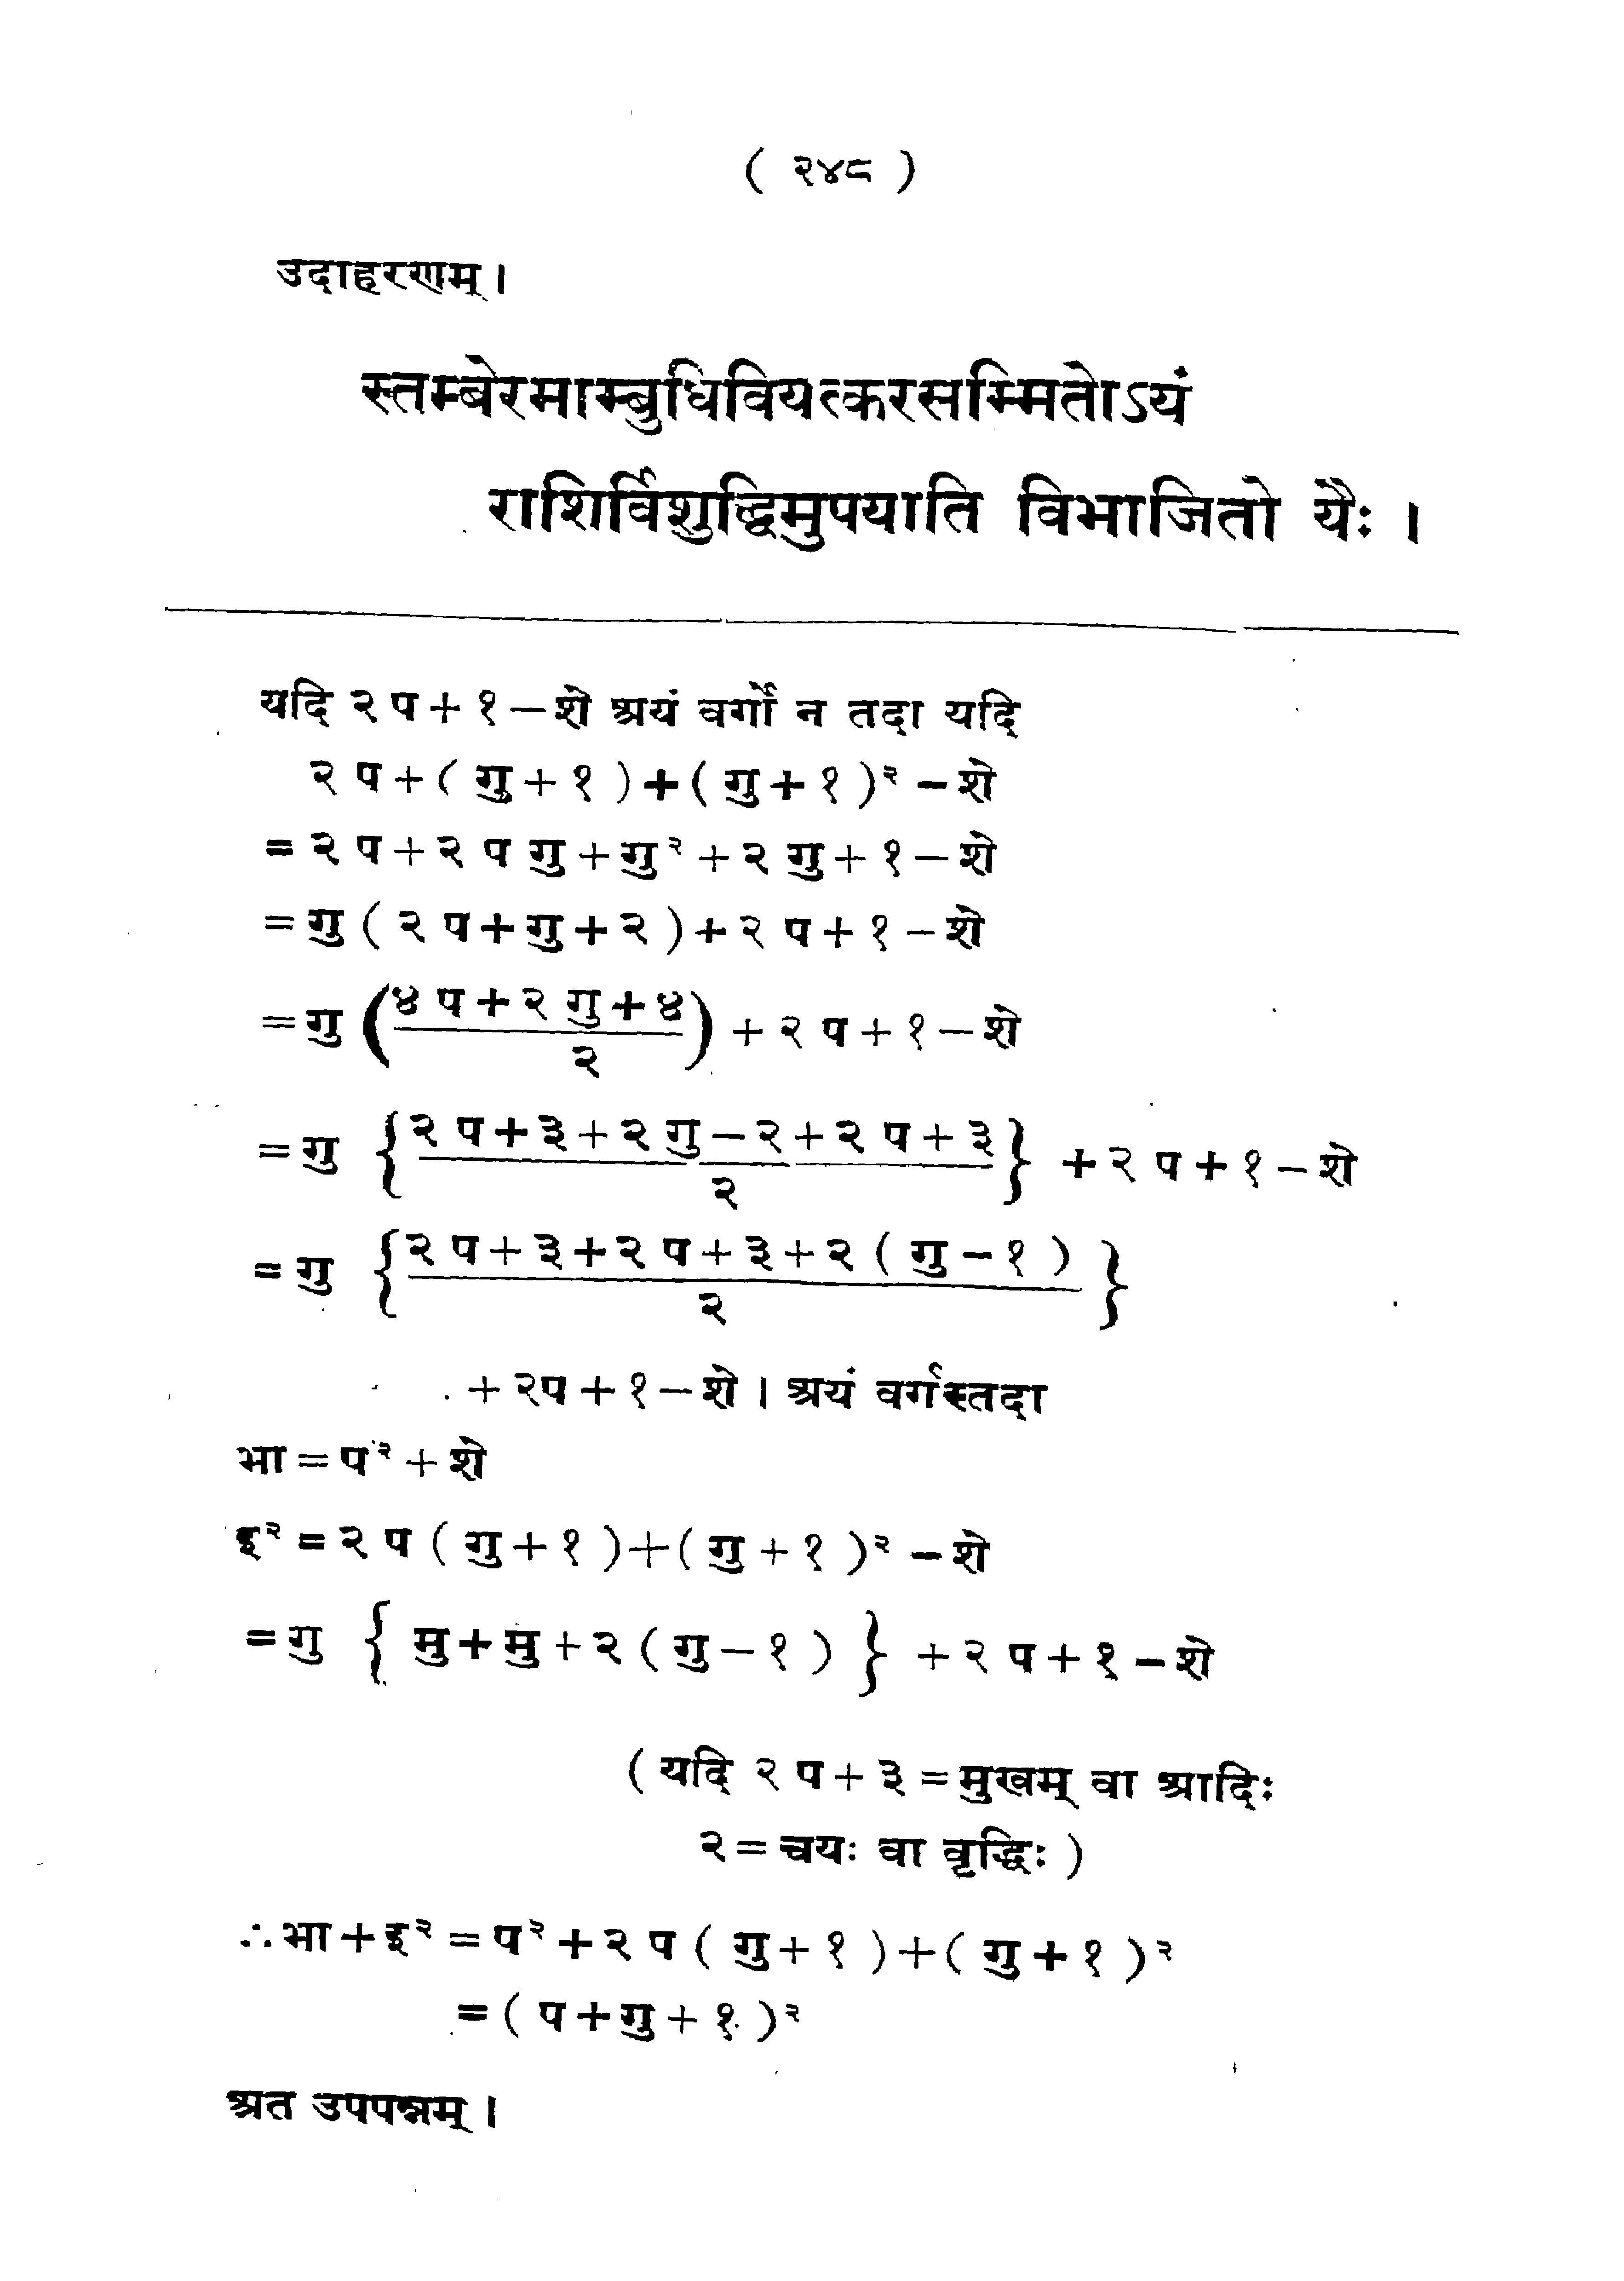 ( २४८ )
उदाहरणम् ।
स्तम्बेरमाम्बुधिवियत्करसम्मितोऽयं
राशिर्विशुद्धिमुपयाति विभाजितो यैः ।
यदि २ प + १ – शे अयं वर्गो न तदा यदि
२ प + ( गु + १ ) + ( गु + १ )² – शे
= २ प + २ प गु + गु² + २ गु + १ – शे
= गु ( २ प + गु + २ ) + २ प + १ – शे
= गु ( ४ प + २ गु + ४ / २ ) + २ प + १ – शे
= गु { २ प + ३ + २ गु – २ + २ प + ३ / २ } + २ प + १ – शे
= गु { २ प + ३ + २ प + ३ + २ ( गु – १ ) / २ }
+ २प + १ – शे । अयं वर्गस्तदा
भा = प² + शे
इ² = २ प ( गु + १ ) + ( गु + १ )² – शे
= गु { मु + मु + २ ( गु – १ ) } + २ प + १ – शे
( यदि २ प + ३ = मुखम् वा आदिः
२ = चयः वा वृद्धिः )
∴ भा + इ² = प² + २ प ( गु + १ ) + ( गु + १ )²
= ( प + गु + १ )²
अत उपपन्नम् ।